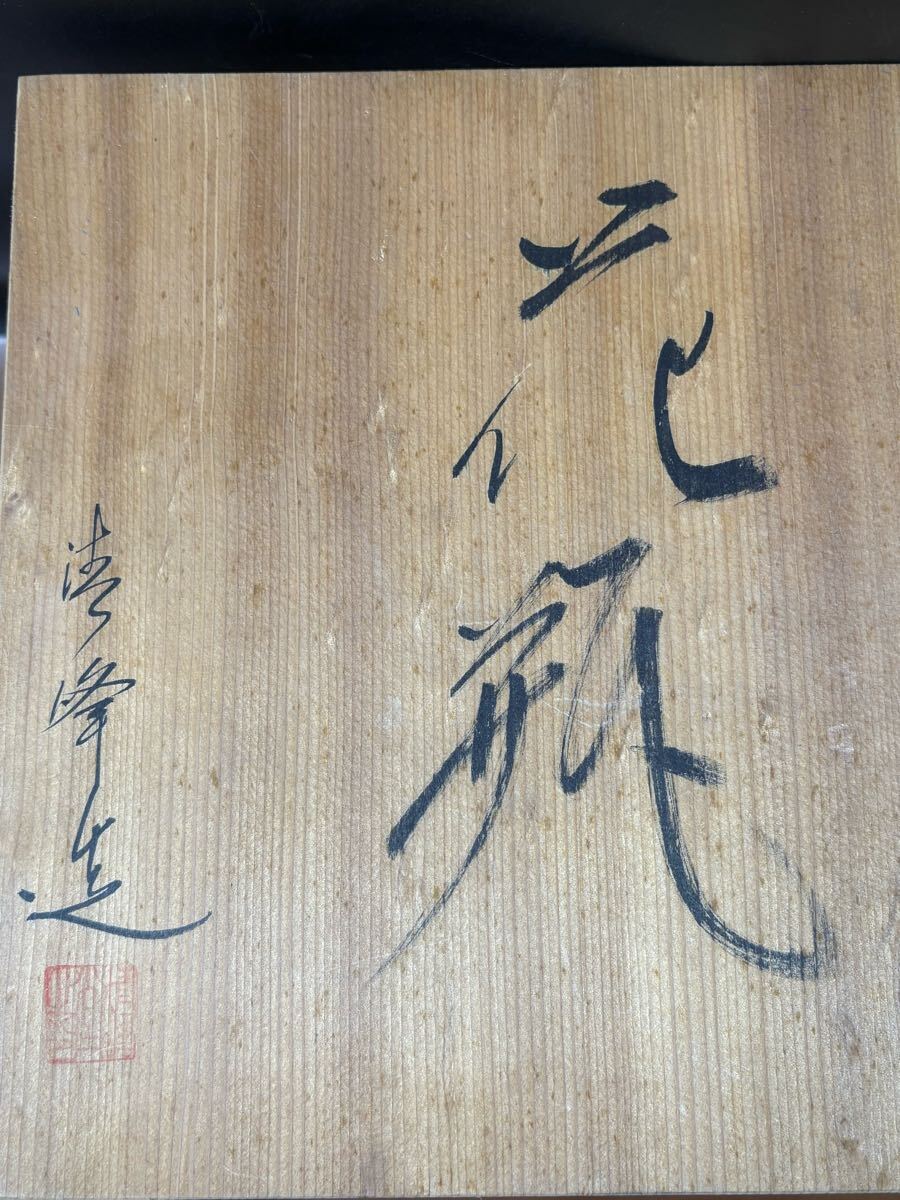 花瓶
清峰造